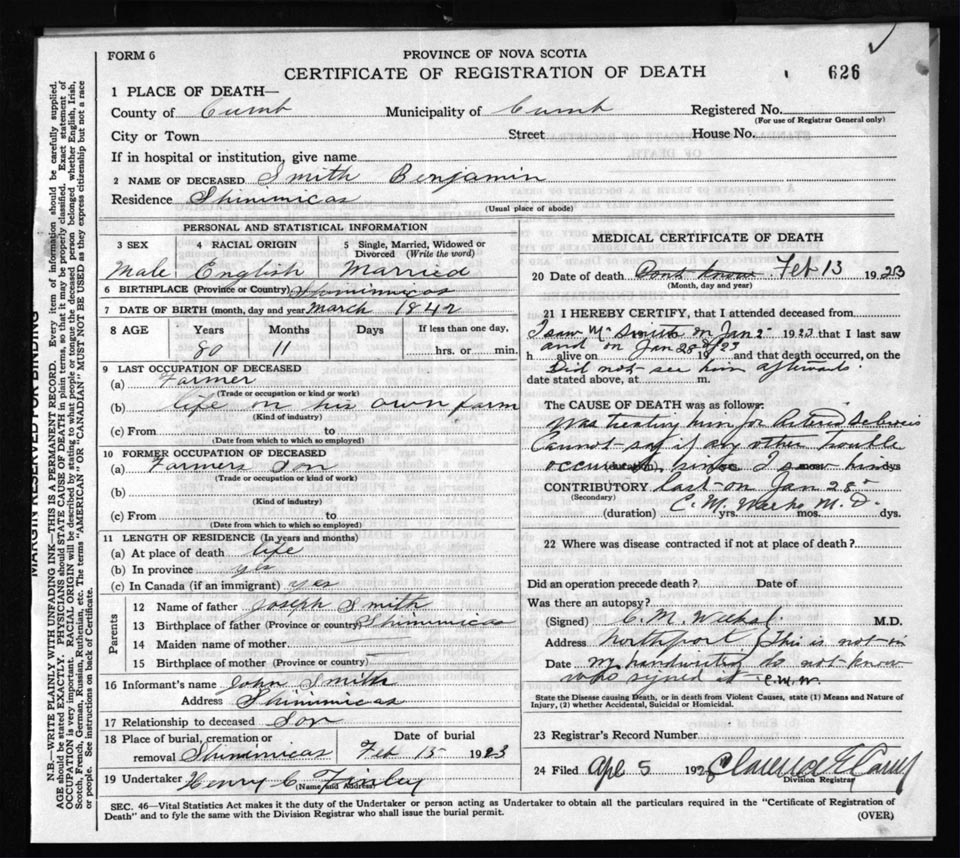 FORM 6
PROVINCE OF NOVA SCOTIA
CERTIFICATE OF REGISTRATION OF DEATH 626
1 PLACE OF DEATH—
County of Cumb Municipality of Cumb Registered No.
(For use of Registrar General only)
City or Town Street House No.
If in hospital or institution, give name
2 NAME OF DECEASED Smith Benjamin
Residence Shinimicas
(Usual place of abode)
PERSONAL AND STATISTICAL INFORMATION
3 SEX 4 RACIAL ORIGIN 5 Single, Married, Widowed or Divorced (Write the word)
Male English Married
6 BIRTHPLACE (Province or Country) Shinimicas
7 DATE OF BIRTH (month, day and year) March 1842
8 AGE Years Months Days If less than one day,
80 11 hrs. or min.
9 LAST OCCUPATION OF DECEASED
(a) Farmer
(Trade or occupation or kind of work)
(b) life on his own farm
(Kind of industry)
(c) From to
(Date from which to which so employed)
10 FORMER OCCUPATION OF DECEASED
(a) Farmers Son
(Trade or occupation or kind of work)
(b)
(Kind of industry)
(c) From to
(Date from which to which so employed)
11 LENGTH OF RESIDENCE (In years and months)
(a) At place of death life
(b) In province yes
(c) In Canada (if an immigrant) yes
Parents
12 Name of father Joseph Smith
13 Birthplace of father (Province or country) Shinimicas
14 Maiden name of mother
15 Birthplace of mother (Province or country)
16 Informant's name John Smith
Address Shinimicas
17 Relationship to deceased Son
18 Place of burial, cremation or removal Date of burial
Shinimicas Feb 15 1923
19 Undertaker Henry C Finley
(Name and Address)
MEDICAL CERTIFICATE OF DEATH
20 Date of death Dont know Feb 13 1923
(Month, day and year)
21 I HEREBY CERTIFY, that I attended deceased from
I saw Mr Smith on Jan 2 1923 that I last saw
and on Jan 28th/23
h alive on 19 and that death occurred, on the
Did not see him afterwards.
date stated above, at m.
The CAUSE OF DEATH was as follows:
Was treating him for Arterio Sclerosis
Cannot say if any other trouble
occurred since I saw him
(duration) yrs. mos. dys
CONTRIBUTORY last on Jan 28
(Secondary) C. M. M. D.
(duration) yrs. mos. dys.
22 Where was disease contracted if not at place of death?
Did an operation precede death? Date of
Was there an autopsy?
(Signed) C. M. M.D.
Address Northport This is not in
Date my handwriting do not know
who signed it C.M.W.
State the Disease causing Death, or in death from Violent Causes, state (1) Means and Nature of
Injury, (2) whether Accidental, Suicidal or Homicidal.
23 Registrar's Record Number
24 Filed Apl 5 192 Clarence E
Division Registrar
SEC. 46—Vital Statistics Act makes it the duty of the Undertaker or person acting as Undertaker to obtain all the particulars required in the "Certificate of Registration of
Death" and to fyle the same with the Division Registrar who shall issue the burial permit.
(OVER)
MARGIN RESERVED FOR BINDING
N.B.—WRITE PLAINLY WITH UNFADING INK—THIS IS A PERMANENT RECORD. Every item of information should be carefully supplied.
AGE should be stated EXACTLY. PHYSICIANS should STATE CAUSE OF DEATH in plain terms, so that it may be properly classified. Exact statement of
OCCUPATION is very important. RACIAL ORIGIN will be described by stating to what people or tongue the deceased person belonged whether English, Irish,
Scotch, French, German, Russian, Ruthenian, etc. The terms "AMERICAN" or "CANADIAN" MUST NOT BE USED as they express citizenship but not a race
or people. See instructions on back of Certificate.